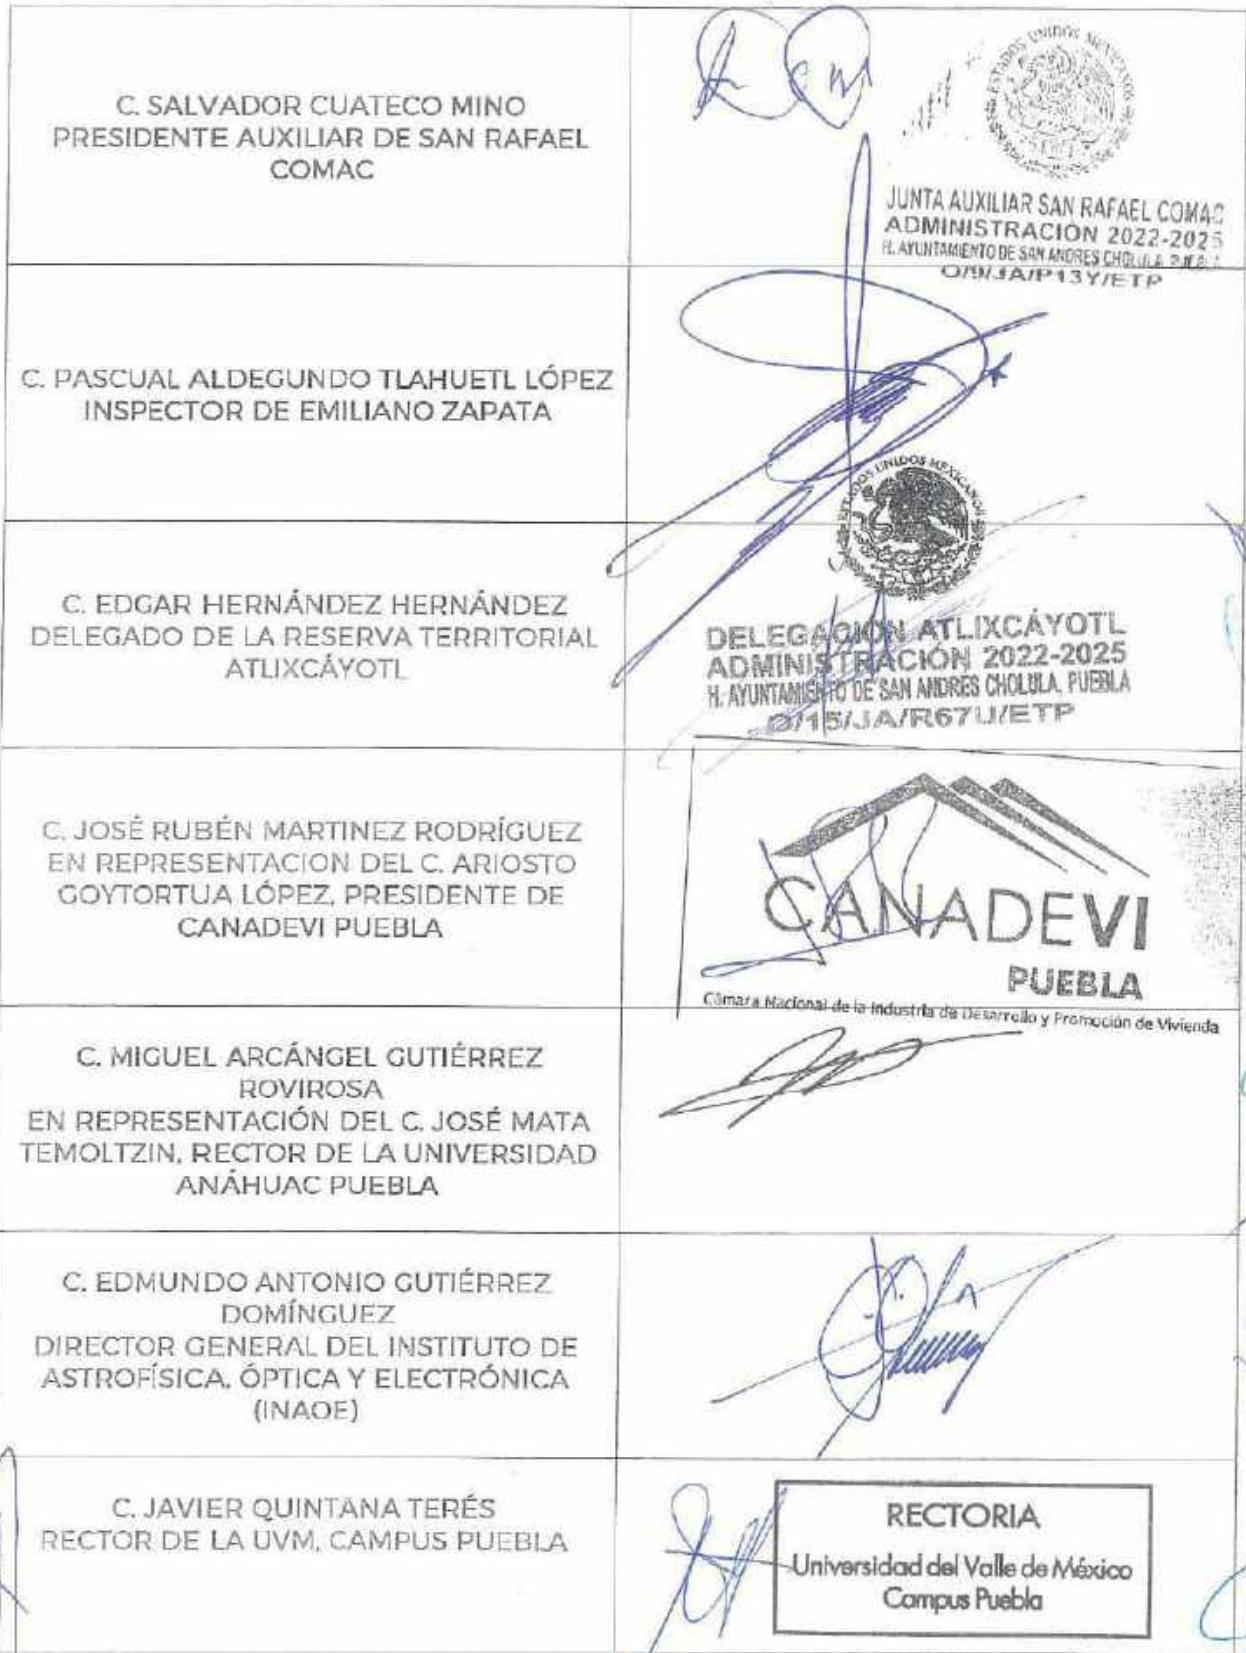 C. SALVADOR CUATECO MINO
PRESIDENTE AUXILIAR DE SAN RAFAEL
COMAC
ESTADOS UNIDOS MEXICANOS
JUNTA AUXILIAR SAN RAFAEL COMAC
ADMINISTRACIÓN 2022-2025
H. AYUNTAMIENTO DE SAN ANDRES CHOLULA, PUEBLA
O/9/JA/P13Y/ETP
C. PASCUAL ALDEGUNDO TLAHUETL LÓPEZ
INSPECTOR DE EMILIANO ZAPATA
ESTADOS UNIDOS MEXICANOS
C. EDGAR HERNÁNDEZ HERNÁNDEZ
DELEGADO DE LA RESERVA TERRITORIAL
ATLIXCÁYOTL
DELEGACIÓN ATLIXCÁYOTL
ADMINISTRACIÓN 2022-2025
H. AYUNTAMIENTO DE SAN ANDRES CHOLULA, PUEBLA
O/15/JA/R67U/ETP
C. JOSÉ RUBÉN MARTINEZ RODRÍGUEZ
EN REPRESENTACION DEL C. ARIOSTO
GOYTORTUA LÓPEZ, PRESIDENTE DE
CANADEVI PUEBLA
CANADEVI
PUEBLA
Cámara Nacional de la Industria de Desarrollo y Promoción de Vivienda
C. MIGUEL ARCÁNGEL GUTIÉRREZ
ROVIROSA
EN REPRESENTACIÓN DEL C. JOSÉ MATA
TEMOLTZIN, RECTOR DE LA UNIVERSIDAD
ANÁHUAC PUEBLA
C. EDMUNDO ANTONIO GUTIÉRREZ
DOMÍNGUEZ
DIRECTOR GENERAL DEL INSTITUTO DE
ASTROFÍSICA, ÓPTICA Y ELECTRÓNICA
(INAOE)
C. JAVIER QUINTANA TERÉS
RECTOR DE LA UVM, CAMPUS PUEBLA
RECTORIA
Universidad del Valle de México
Campus Puebla